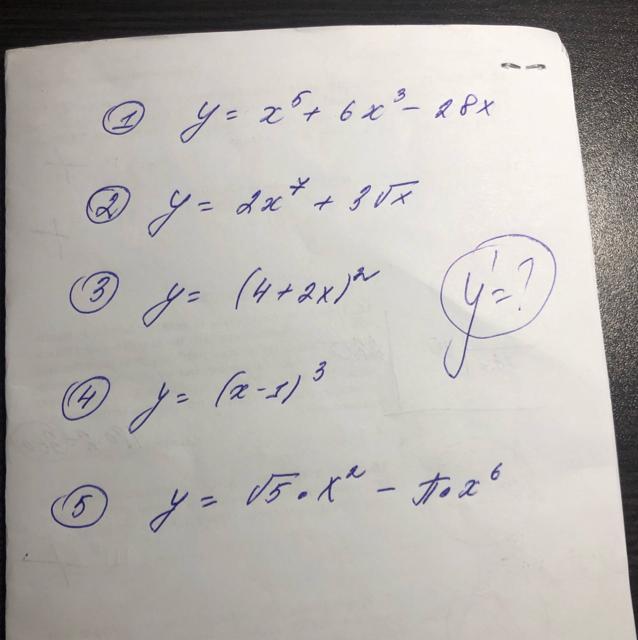 ① y = x⁵ + 6x³ - 28x
② y = 2x⁷ + 3√x
③ y = (4+2x)²
y' = ?
④ y = (x-1)³
⑤ y = √5 • x² - π • x⁶